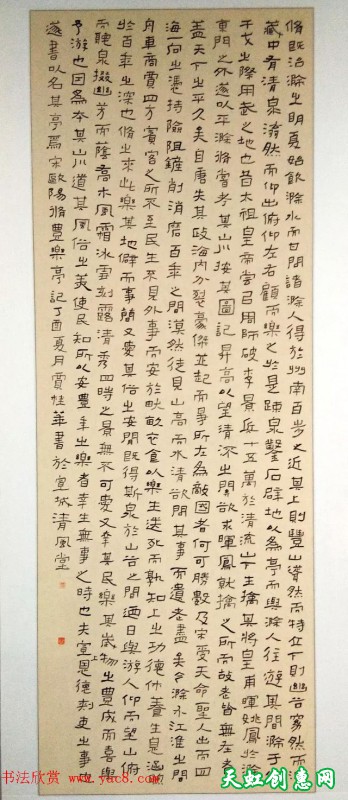 修既治滁之明年夏始飲滁水而甘問諸滁人得於州南百步之近其上則豐山聳然而特立下則幽谷窈然而深
藏中有清泉滃然而仰出俯仰左右顧而樂之於是疏泉鑿石辟地以為亭而與滁人往遊其間滁于
干戈之際用武之地也昔太祖皇帝嘗以周師破李景兵十五萬於清流山下生擒其將皇甫暉姚鳳於滁
東門之外遂以平滁修嘗考其山川按其圖記昇高以望清流之關欲求暉鳳就擒之所而故老皆無在者
蓋天下之平久矣自唐失其政海內分裂豪傑並起而爭所在為敵國者何可勝數及宋受天命聖人出而四
海一向之憑恃險阻鏟削消磨百年之間漠然徒見山高而水清欲問其事而遺老盡矣今滁介江淮之間
舟車商賈四方賓客之所不至民生不見外事而安於畎畝衣食以樂生送死而孰知上之功德休養生息涵煦
於百年之深也修之來此樂其地僻而事簡又愛其俗之安閒既得斯泉於山谷之間乃日與滁人仰而望山俯
而聽泉掇幽芳而蔭喬木風霜冰雪刻露清秀四時之景無不可愛又幸其民樂其歲物之豐成而喜與
予游也因為本其山川道其風俗之美使民知所以安豐年之樂者幸生無事之時也夫宣恩德刺史之事也
遂書以名其亭焉宋歐陽修豐樂亭記丁酉夏月賈桂華書於宣城清風堂
书法欣赏 www.yac8.com
天虹创意网